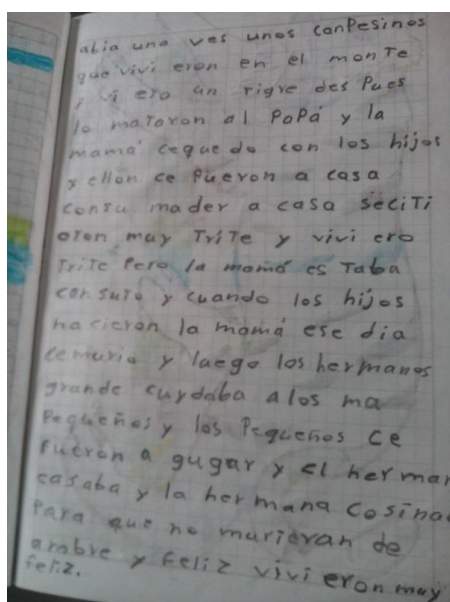 abia una ves unos canpesinos
que vivi eron en el monte
y vi ero un tigre des Pues
lo mataron al PaPá y la
mamá ceque do con los hijos
y ellon ce fueron a casa
consu mader a casa seciti
eron muy TriTe y vivi ero
TriTe Pero la mamá es Taba
con suto y cuando los hijos
nacieron la mamá ese dia
cemurio y luego los hermanos
grande cuydaba alos ma
Pequeños y los Pequeños ce
fueron a gugar y el herman
casaba y la hermana cosina
Para que no murieran de
ambre y feliz vivi eron muy
feliz.